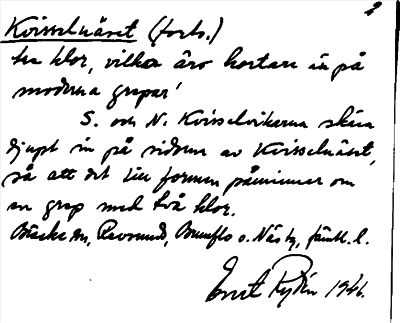 2
Kvisselnäset (forts.)
tre klor, vilka äro kortare än på
moderna grepar!
S. och N. Kvisselvikarna skära
djupt in på sidorna av Kvisselnäset,
så att det till formen påminner om
en grep med två klor.
Bräcke sn, Revsund, Brunflo o. Näs tg, Jämtl. l.
Ernst Rydén 1946.